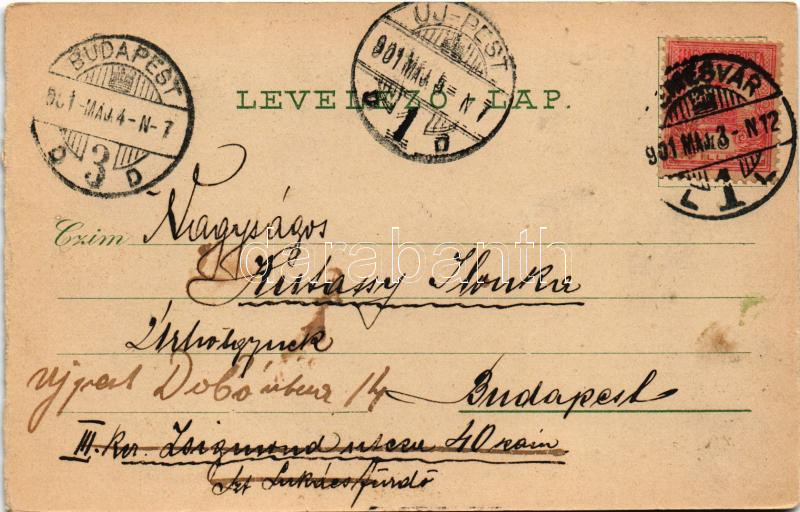 BUDAPEST
901-MÁJ.4-N-7
3
D D
UJ-PEST
901 MÁJ 5- N 7
1
D
LEVELEZŐ LAP.
TEMESVÁR
901 MÁJ. 3- N12
L 1
Czim
Nagyságos
Kutassy Ilonka
Úrhölgynek
Ujpest Dobó utcza 14
Budapest
III. ker. Zsigmond utcza 40 szám
Szt Lukácsfürdő
darabanth